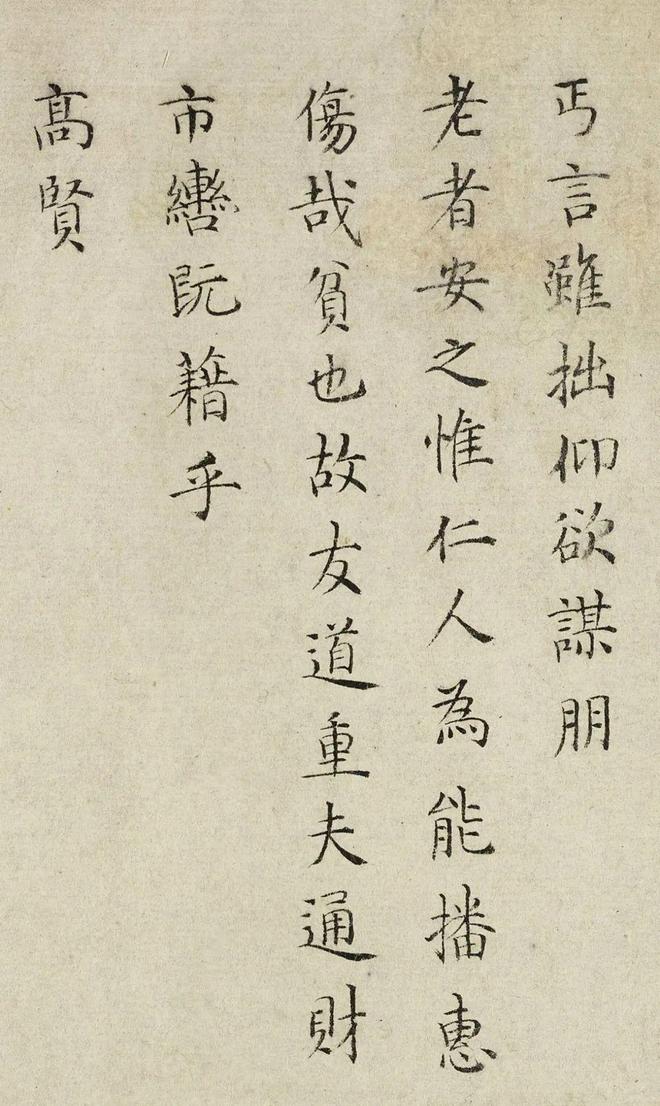 丐言雖拙仰欲謀朋
老者安之惟仁人為能播惠
傷哉貧也故友道重夫通財
市轡阮藉乎
高賢